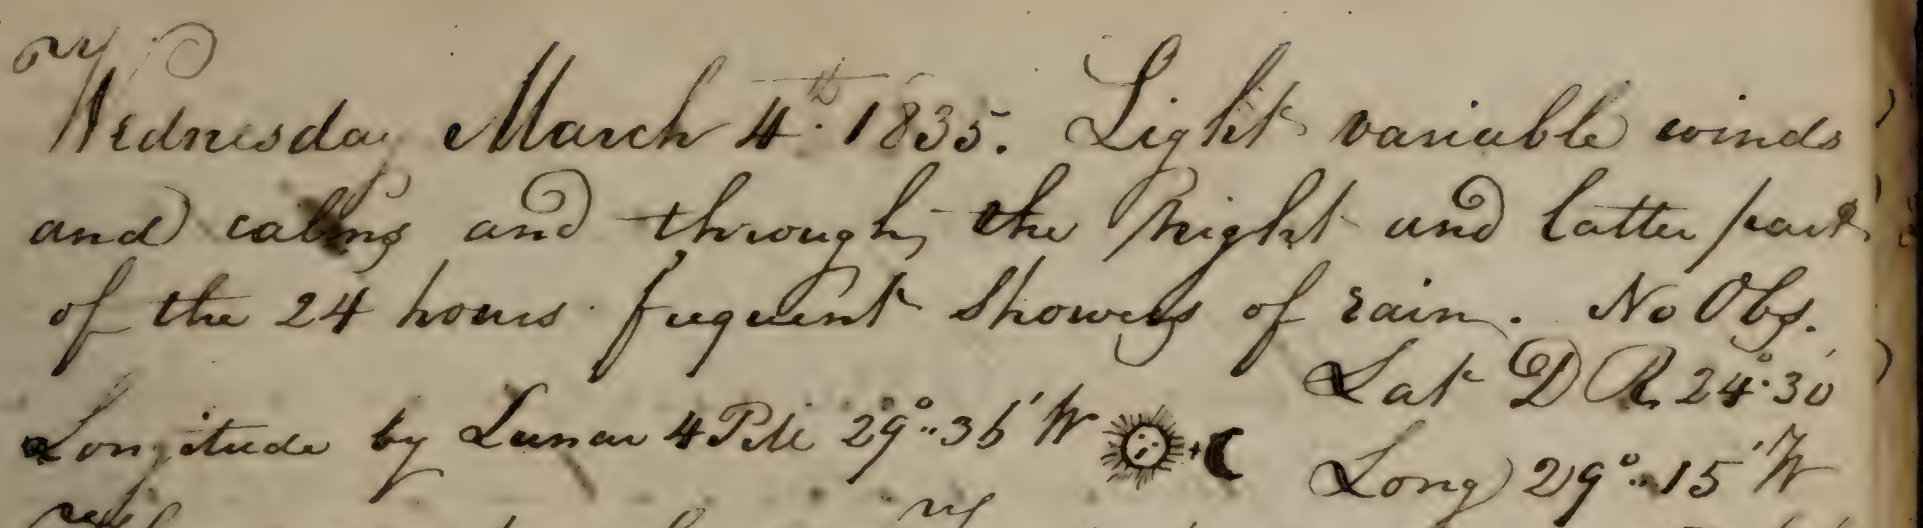 Wednesday March 4th 1835. Light variable winds
and calms and through the Night and latter part
of the 24 hours fequent Showers of rain. No Obs.
Lat D R 24°.30'
Longitude by Lunar 4 PM 29°..36' W
Long 29°..15' W